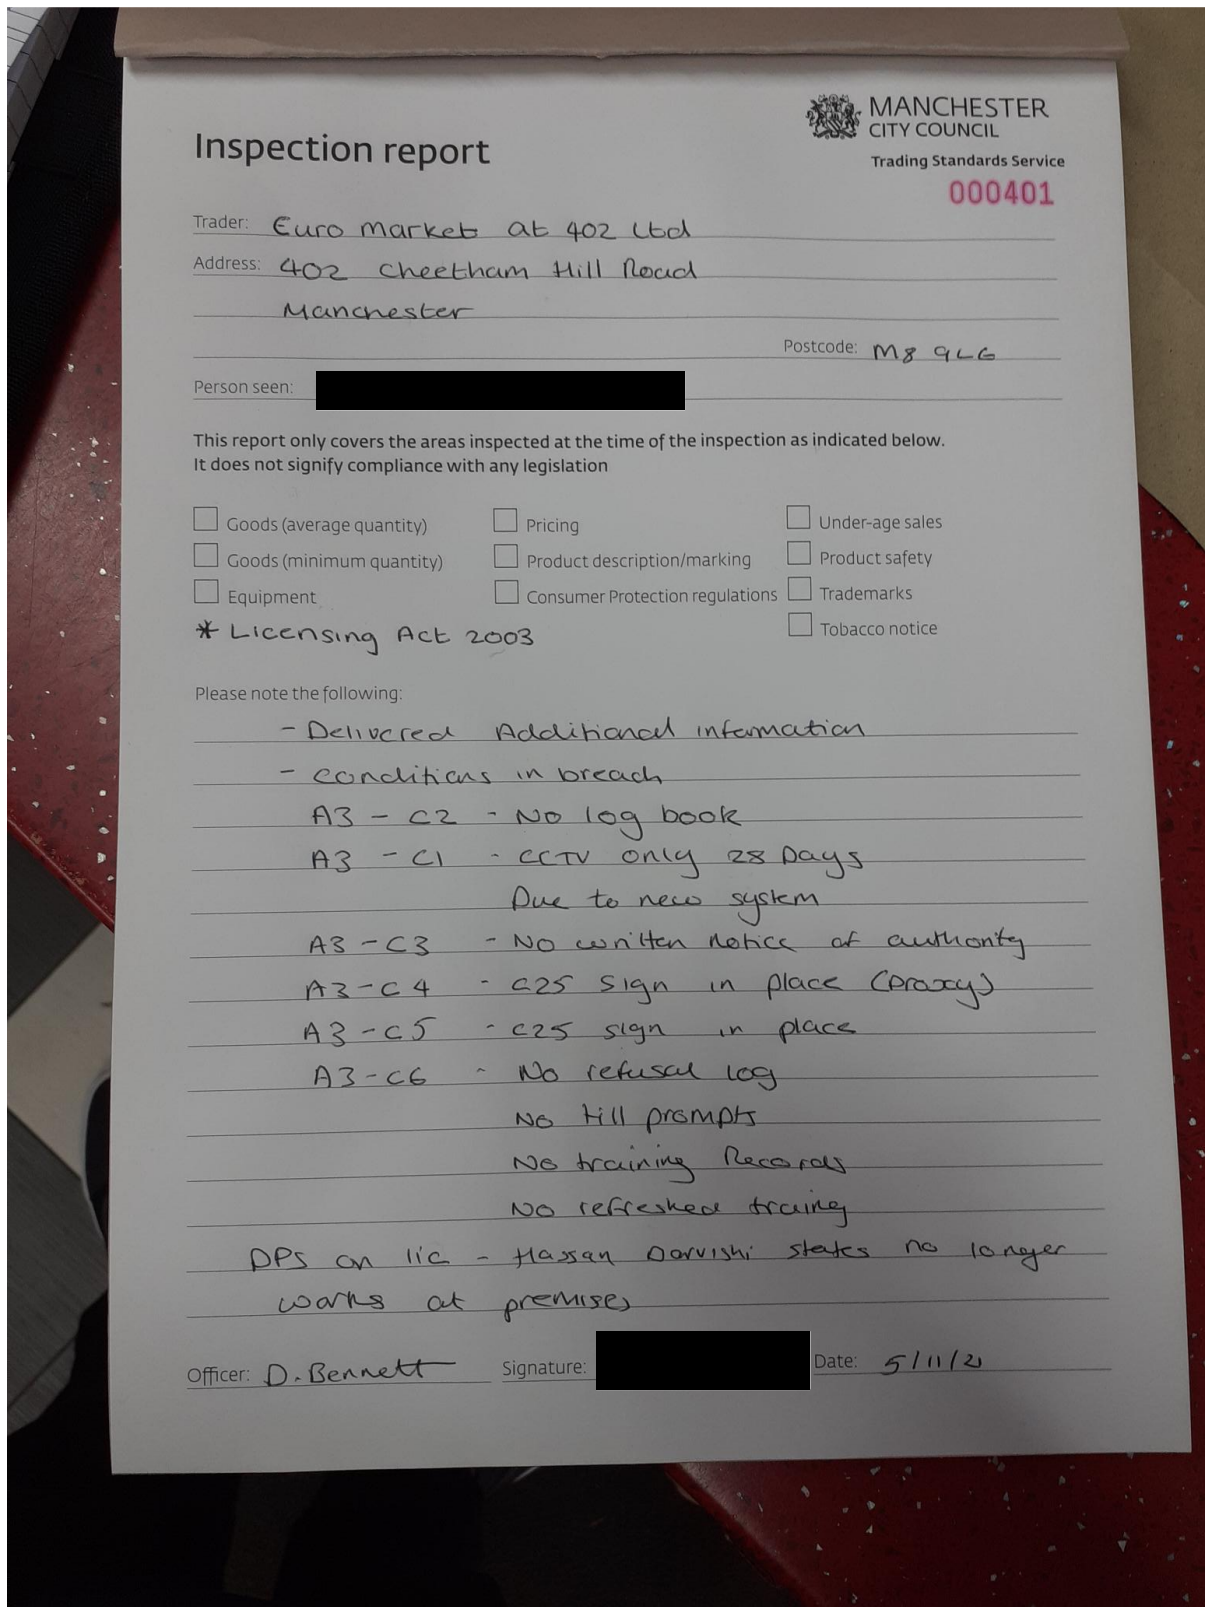 MANCHESTER
CITY COUNCIL
Inspection report
Trading Standards Service
000401
Trader: Euro market at 402 Ltd
Address: 402 Cheetham Hill Road
Manchester
Postcode: M8 9LG
Person seen:
This report only covers the areas inspected at the time of the inspection as indicated below.
It does not signify compliance with any legislation
Goods (average quantity) Pricing Under-age sales
Goods (minimum quantity) Product description/marking Product safety
Equipment Consumer Protection regulations Trademarks
* Licensing Act 2003 Tobacco notice
Please note the following:
- Delivered Additional information
- conditions in breach
A3 - C2 - No log book
A3 - C1 - CCTV only 28 Days
Due to new system
A3 - C3 - No written notice of authority
A3 - C4 - C25 sign in place (proxy)
A3 - C5 - C25 sign in place
A3 - C6 - No refusal log
No till prompts
No training Records
No refreshed traing
DPS on lic - Hassan Darvishi states no longer
works at premises
Officer: D. Bennett Signature: Date: 5/11/21